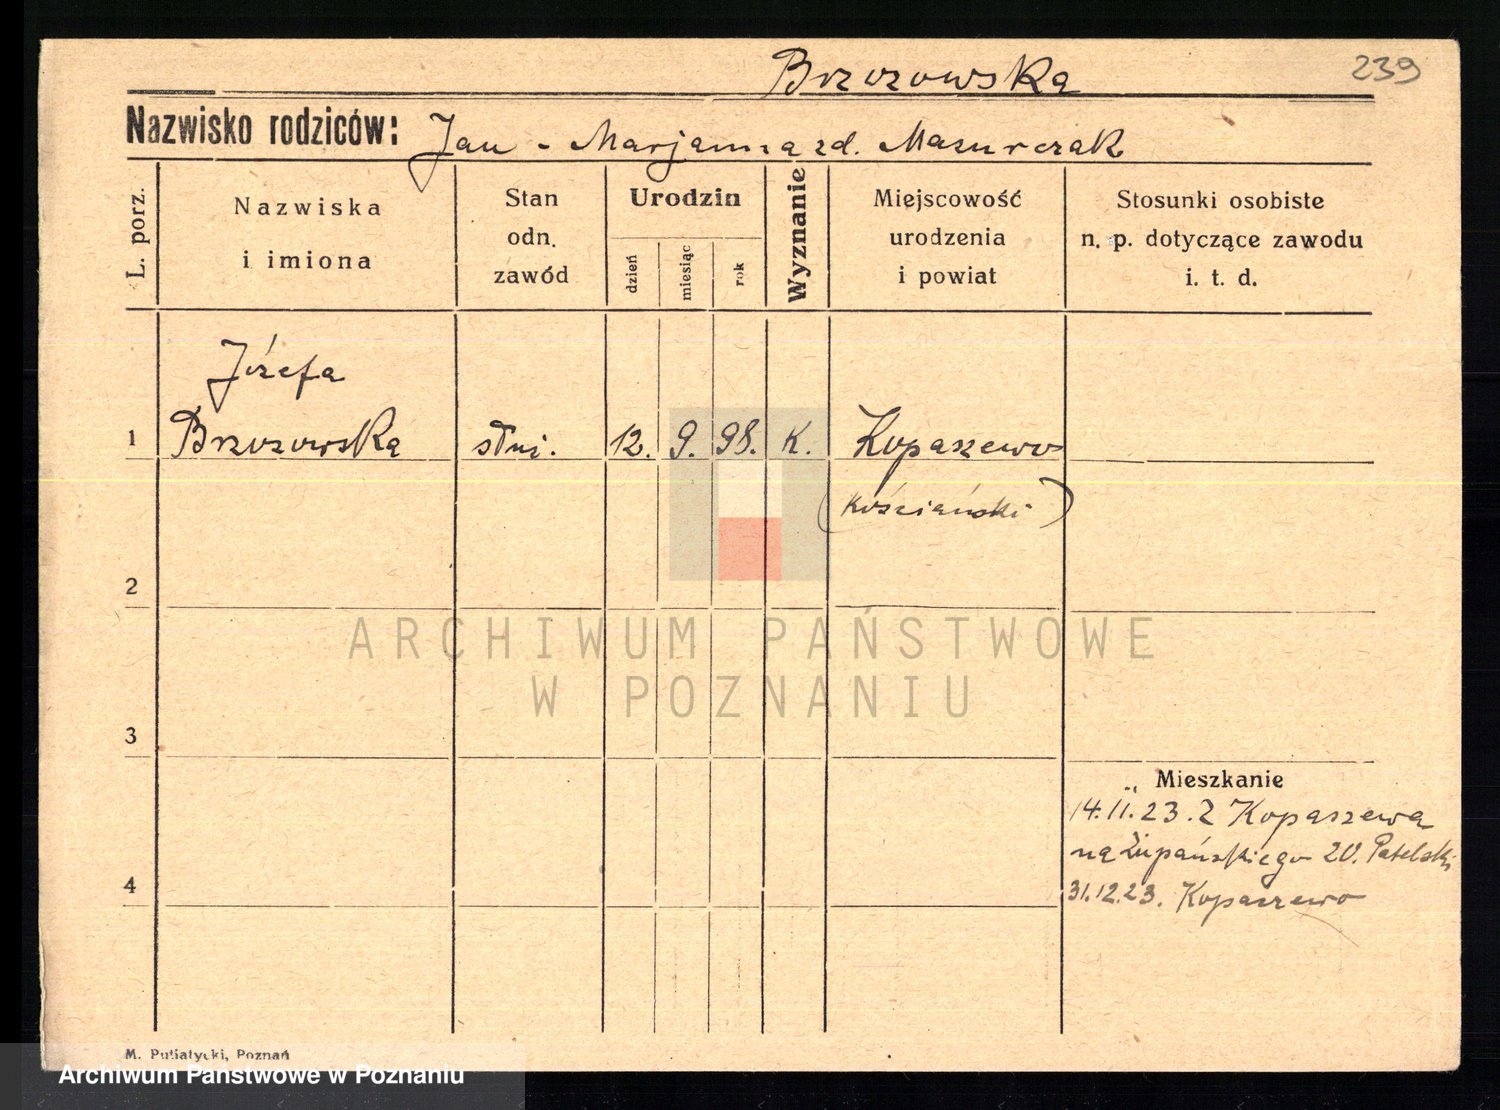 Brzozowska
239
Nazwisko rodziców: Jan - Marjanna zd. Mazurczak
L. porz.
Nazwiska
i imiona
Stan
odn.
zawód
Urodzin
dzień
miesiąc
rok
Wyznanie
Miejscowość
urodzenia
i powiat
Stosunki osobiste
n. p. dotyczące zawodu
i. t. d.
Józefa
1 Brzozowska służ. 12. 9. 98. K. Kopaszewo
(kościański)
2
ARCHIWUM PAŃSTWOWE
W POZNANIU
3
Mieszkanie
14.11.23. Z Kopaszewa
na Żupańskiego 20.
31.12.23. Kopaszewo
4
M. Putiatycki, Poznań
Archiwum Państwowe w Poznaniu